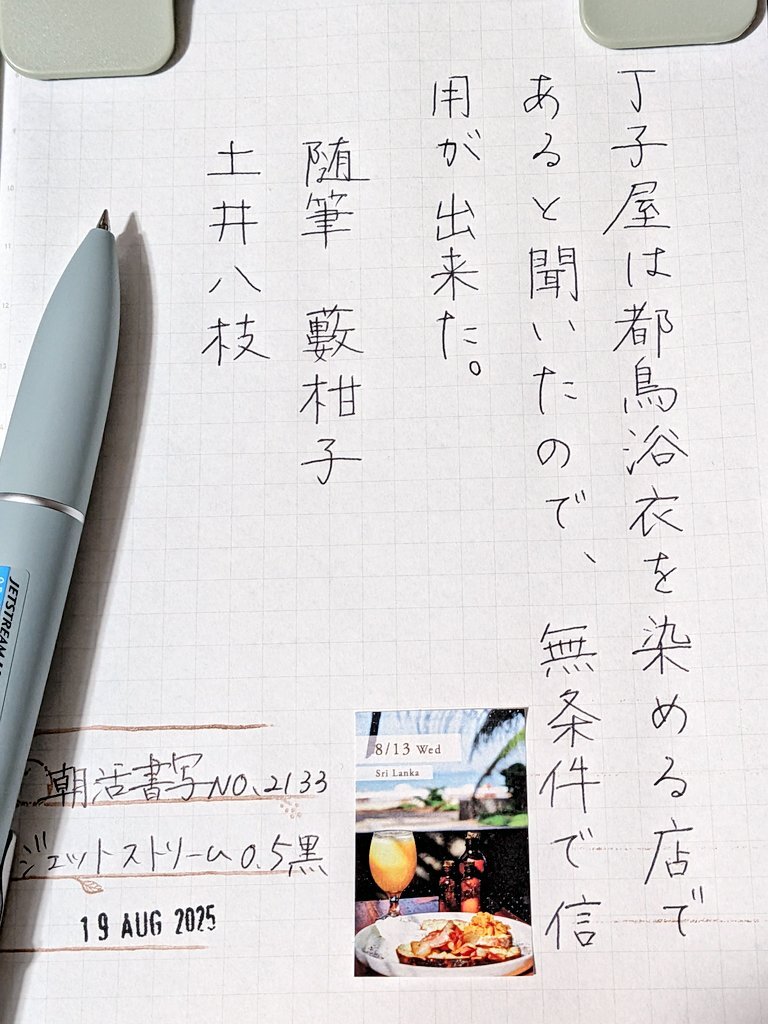 丁子屋は都鳥浴衣を染める店で
あると聞いたので、無条件で信
用が出来た。
随筆 藪柑子
土井八枝
朝活書写NO.2133
ジェットストリーム0.5黒
19 AUG 2025
8/13 Wed
Sri Lanka
JETSTREAM